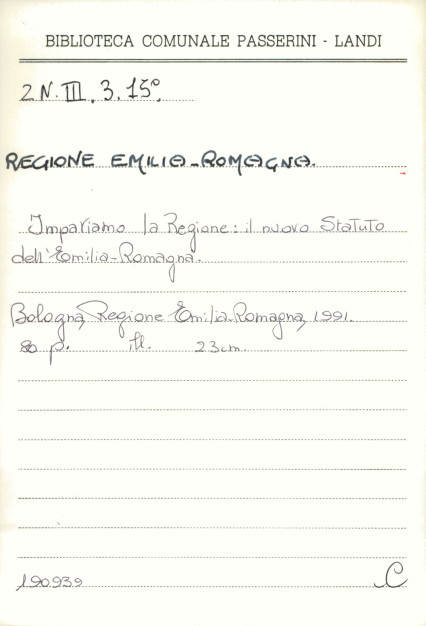 BIBLIOTECA COMUNALE PASSERINI - LANDI
2 N. III. 3. 15°.
REGIONE EMILIA-ROMAGNA.
Impariamo la Regione: il nuovo Statuto
dell'Emilia-Romagna.
Bologna, Regione Emilia-Romagna, 1991.
80 p. ill. 23cm.
190939 C